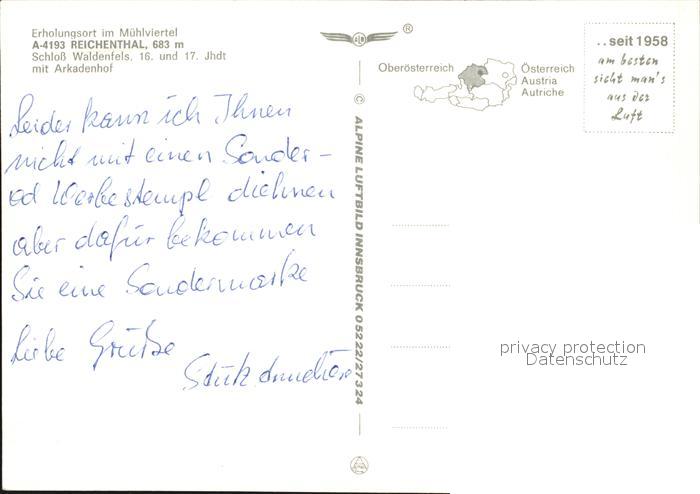 Erholungsort im Mühlviertel
A-4193 REICHENTHAL, 683 m
Schloß Waldenfels, 16. und 17. Jhdt
mit Arkadenhof
Leider kann ich Ihnen
nicht mit einen Sonder-
od Werbestempl diehnen
aber dafür bekommen
Sie eine Sondermarke
Liebe Grüße
®
© ALPINE LUFTBILD INNSBRUCK 05222/27324
Oberösterreich
Österreich
Austria
Autriche
..seit 1958
am besten
sieht man's
aus der
Luft
privacy protection
Datenschutz